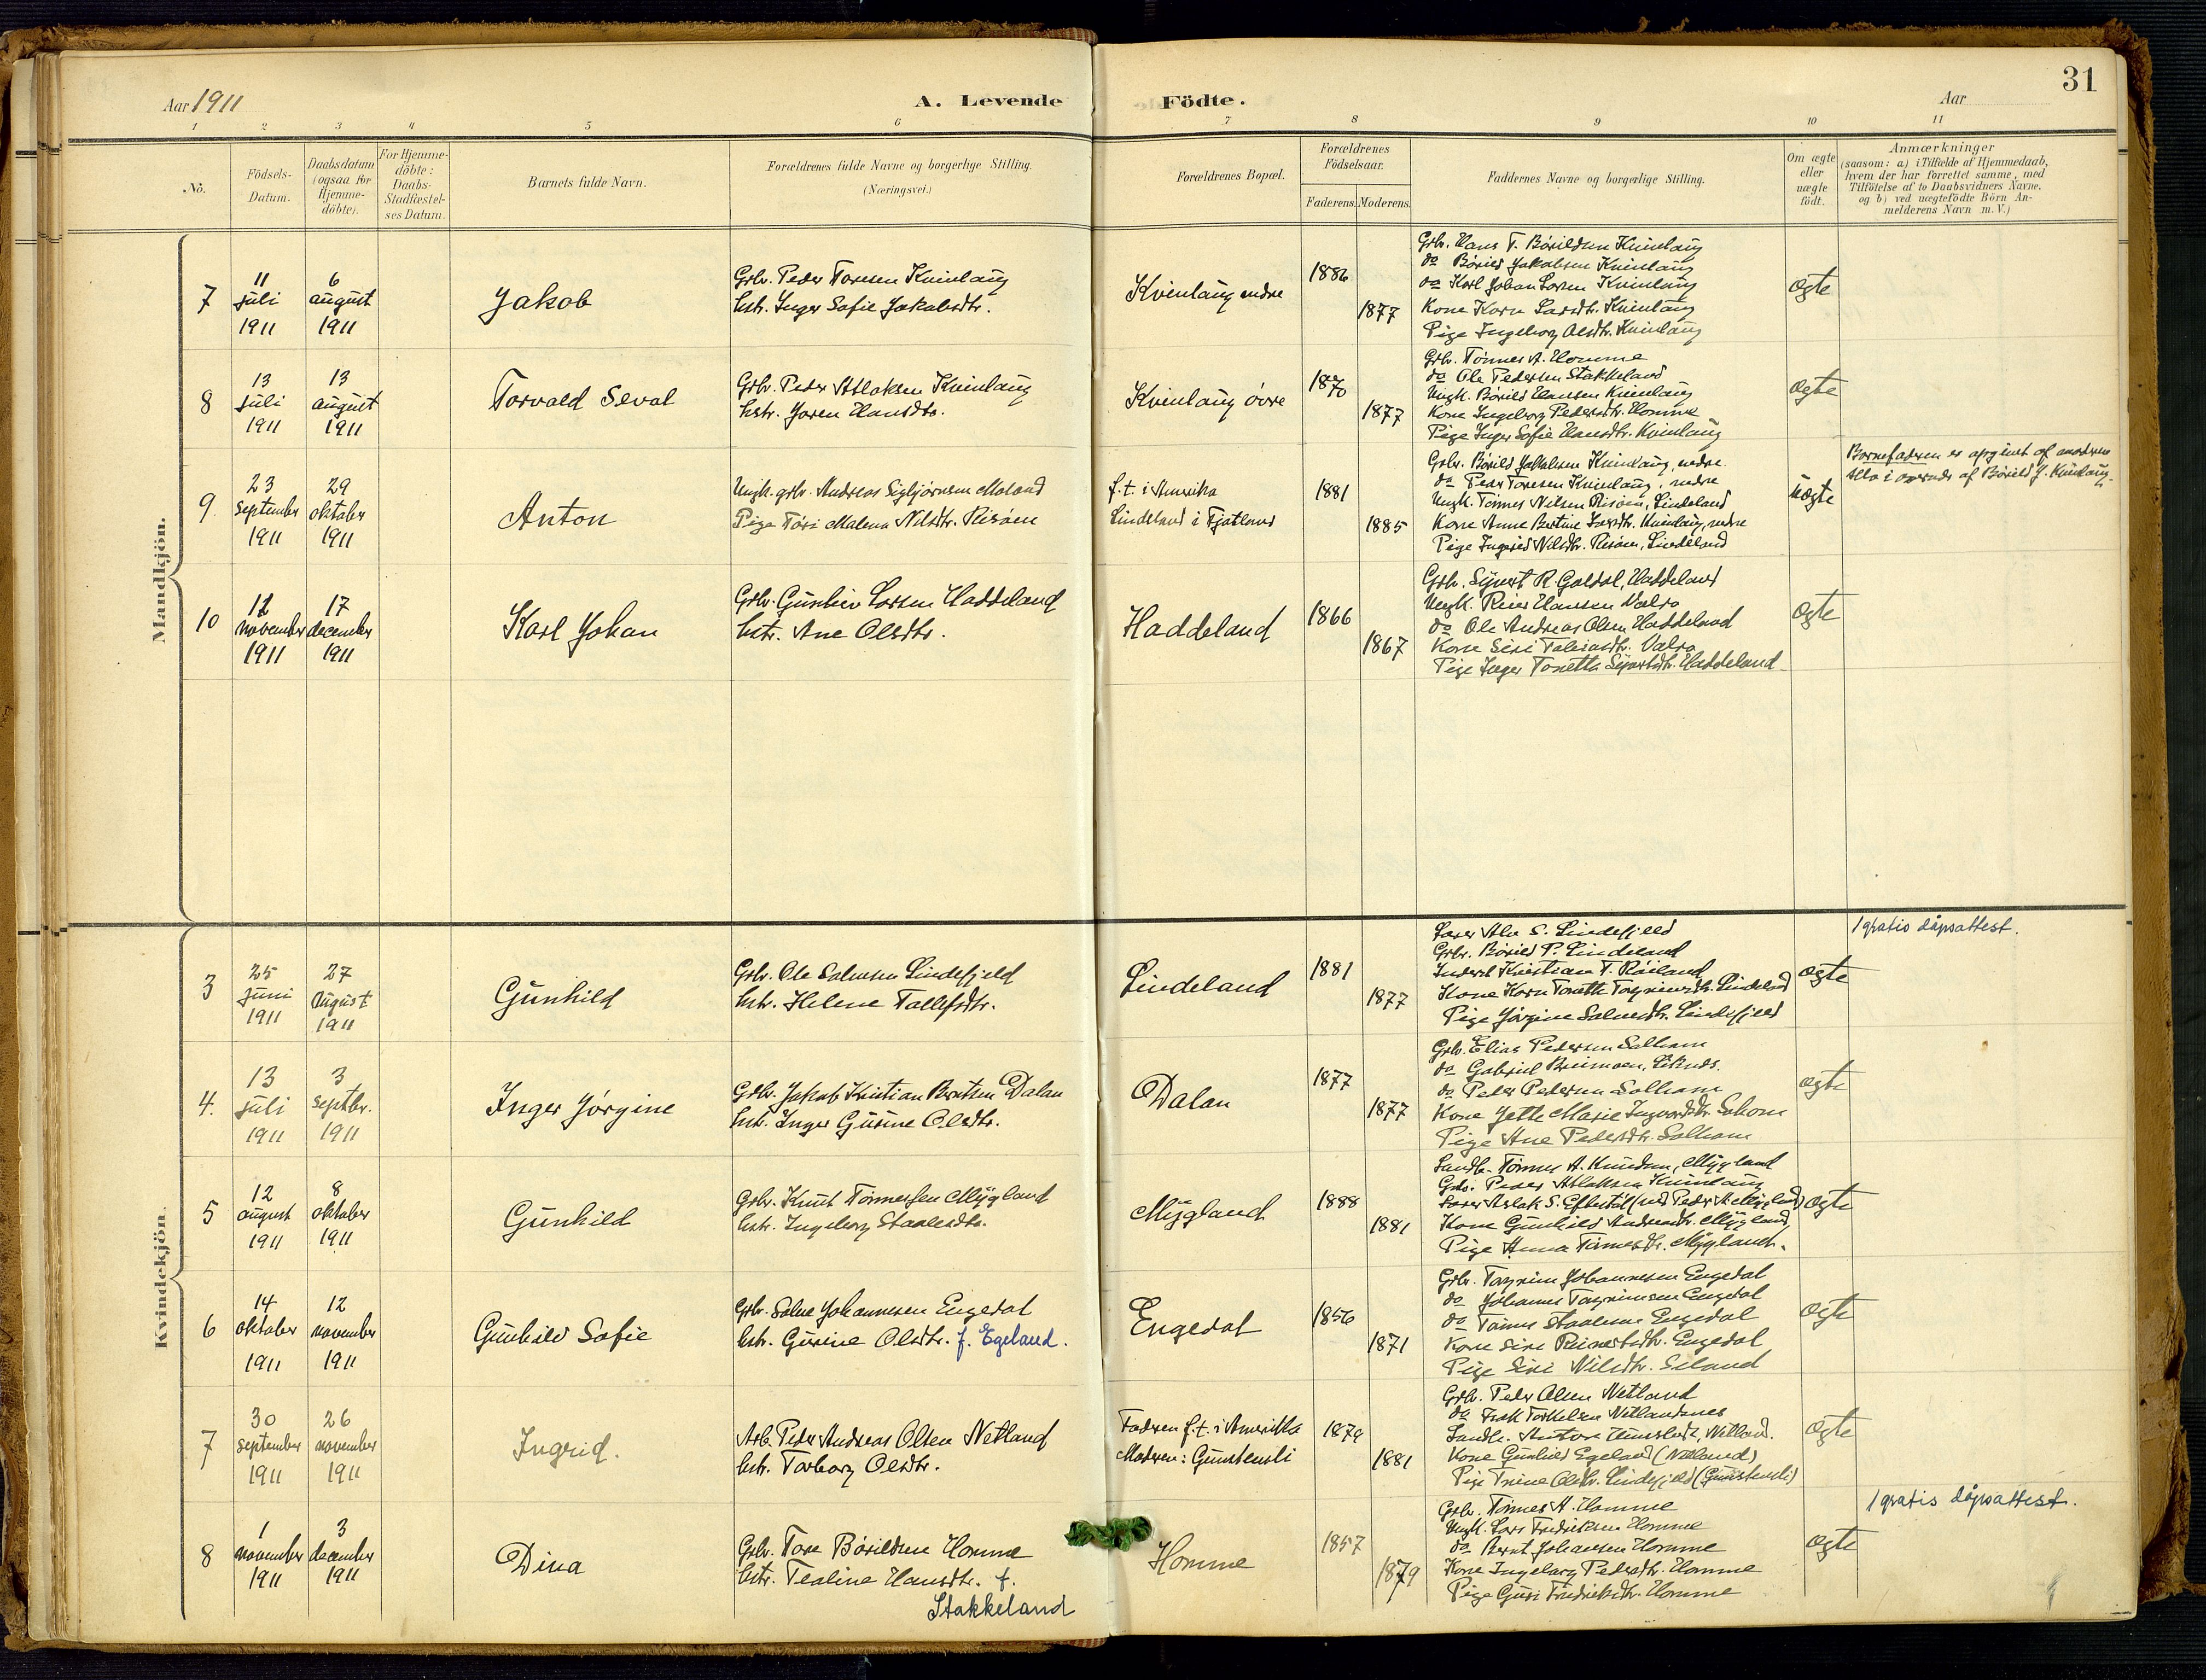 31
Aar 1911
A. Levende Födte.
Aar
1 2 3 4 5 6 7 8 9 10 11
No.
Födsels-
Datum.
Daabsdatum
(ogsaa for
Hjemme-
döbte).
For Hjemme-
döbte:
Daabs-
Stadfæstel-
ses Datum.
Barnets fulde Navn.
Forældrenes fulde Navne og borgerlige Stilling.
(Næringsvei.)
Forældrenes Bopæl.
Forældrenes
Födselsaar.
Faderens. Moderens.
Faddernes Navne og borgerlige Stilling.
Om ægte
eller
uægte
födt.
Anmærkninger
(saasom: a) i Tilfælde af Hjemmedaab,
hvem der har forrettet samme, med
Tilföielse af to Daabsvidners Navne,
og b) ved uægtefödte Börn An-
melderens Navn m.V.)
Mandkjön.
7
11
juli
1911
6
august
1911
Jakob
Grbr. Peder Toresen Kvinlaug
hstr. Inger Sofie Jakobsdtr.
Kvinlaug nedre
1886
1877
Grbr. Hans T. Börildsen Kvinlaug
do Böril Jakobsen Kvinlaug
do Karl Johan Larsen Kvinlaug
Kone Karn Larsdtr. Kvinlaug
Pige Ingeborg Olsdtr. Kvinlaug
ægte
8
13
juli
1911
13
august
1911
Torvald Seval
Grbr. Peder Atlaksen Kvinlaug
hstr. Joren Hansdtr.
Kvinlaug övre
1870
1877
Grbr. Tönnes A. Homme
do Ole Pedersen Stakkeland
Ungk. Börild Hansen Kvinlaug
Kone Ingeborg Pedersdtr. Homme
Pige Inger Sofie Hansdtr. Kvinlaug
ægte
9.
23
september
1911
29
oktober
1911
Anton
Ungk. grbr. Andreas Sigbjörnsen Moland
Pige Töri Malena Nilsdtr. Risöen
f.t. i Amerika
Lindeland i Fjotland
1881
1885
Grbr. Börild Jakobsen Kvinlaug, nedre.
do Peder Toresen Kvinlaug, nedre
Ungk. Tönnes Nilsen Risöen, Lindeland
Kone Anne Bertine Larsdtr. Kvinlaug, nedre
Pige Ingerid Nilsdtr. Risöen, Lindeland
uægte
Barnefaderen er opgivet af moderen
af Börild J. Kvinlaug.
10
12
november
1911
17
december
1911
Karl Johan
Grbr. Gunliev Larsen Haddeland
hstr. Ane Olsdtr.
Haddeland
1866
1867
Grbr. Sigvert R. Galdal, Haddeland
Ungk. Reier Hansen Valra
do Ole Andreas Olsen Haddeland
Kone Siri Valra
Pige Inger Tonette Sigvertsdtr. Haddeland
ægte
Kvindekjön.
3
25
juni
1911
27
August
1911
Gunhild
Grbr. Ole Salvesen Lindefjeld
hstr. Helene Tallefsdtr.
Lindeland
1881
1877
Lærer Alv S. Lindefjeld
Grbr. Börild P. Lindeland
Inderst Kristian T. Röiland
Kone Karn Tonette Torgrimsdtr. Lindeland
Pige Jörgine Salvesdtr. Lindefjeld
ægte
1 gratis dåpsattest.
4.
13
juli
1911
3
septbr.
1911
Inger Jörgine
Grbr. Jakob Kristian Berntsen Dalan
hstr. Inger Gurine Olsdtr.
Dalan
1877
1877
Grbr. Elias Pedersen Salham
do Gabriel Bruimoen,
do Peder Pedersen Solham
Kone Jette Marie Ingvardsdtr. Solham
Pige Ane Pedersdtr. Solham
ægte
5
12
august
1911
8
oktober
1911
Gunhild
Grbr. Knut Tönnessen Mygland
hstr. Ingeborg Staalesdtr.
Mygland
1888
1881
Landh. Tönnes A. Knudsen, Mygland
Grbr. Peder Atlaksen Kvinlaug
Lærer Aslak S. Eftestöl (ved Peder A Mygland)
Kone Gunhild Andreasdtr. Mygland
Pige Anna Tönnesdtr. Mygland.
ægte
6
14
oktober
1911
12
november
1911
Gunhild Sofie
Grbr. Salve Johannesen Engedal
hstr. Gurine Olsdtr. f. Egeland.
Engedal
1856
1871
Grbr. Torgrim Johannesen Engedal
do Johannes Torgrimsen Engedal
do Tönnes Staalesen Engedal
Kone Siri Reinertsdtr. Engedal
Pige Siri Nilsdtr. Seland
ægte
7
30
september
1911
26
november
1911
Ingrid.
Arb. Peder Andreas Olsen Netland
hstr. Torborg Olsdtr.
Faderen f.t. i Amerika
Moderen: Gunstensli
1879
1881
Grbr. Peder Olsen Netland
do Isak Torkelsen Netlandsnes
Landh. Anton Netland.
Kone Gunhild Egeland (Netland)
Pige Trine Olsdtr. Lindefjeld (Gunstensli)
ægte
8
1
november
1911
3
december
1911
Dina
Grbr. Tore Börildsen Homme
hstr. Tealine Hansdtr. f.
Stakkeland
Homme
1857
1879
Grbr. Tönnes A. Homme
Ungk. Lars Fredriksen Homme
do Bernt Johansen Homme
Kone Ingeborg Pedersdtr. Homme
Pige Guri Fredriksdtr. Homme
ægte
1 gratis dåpsattest.